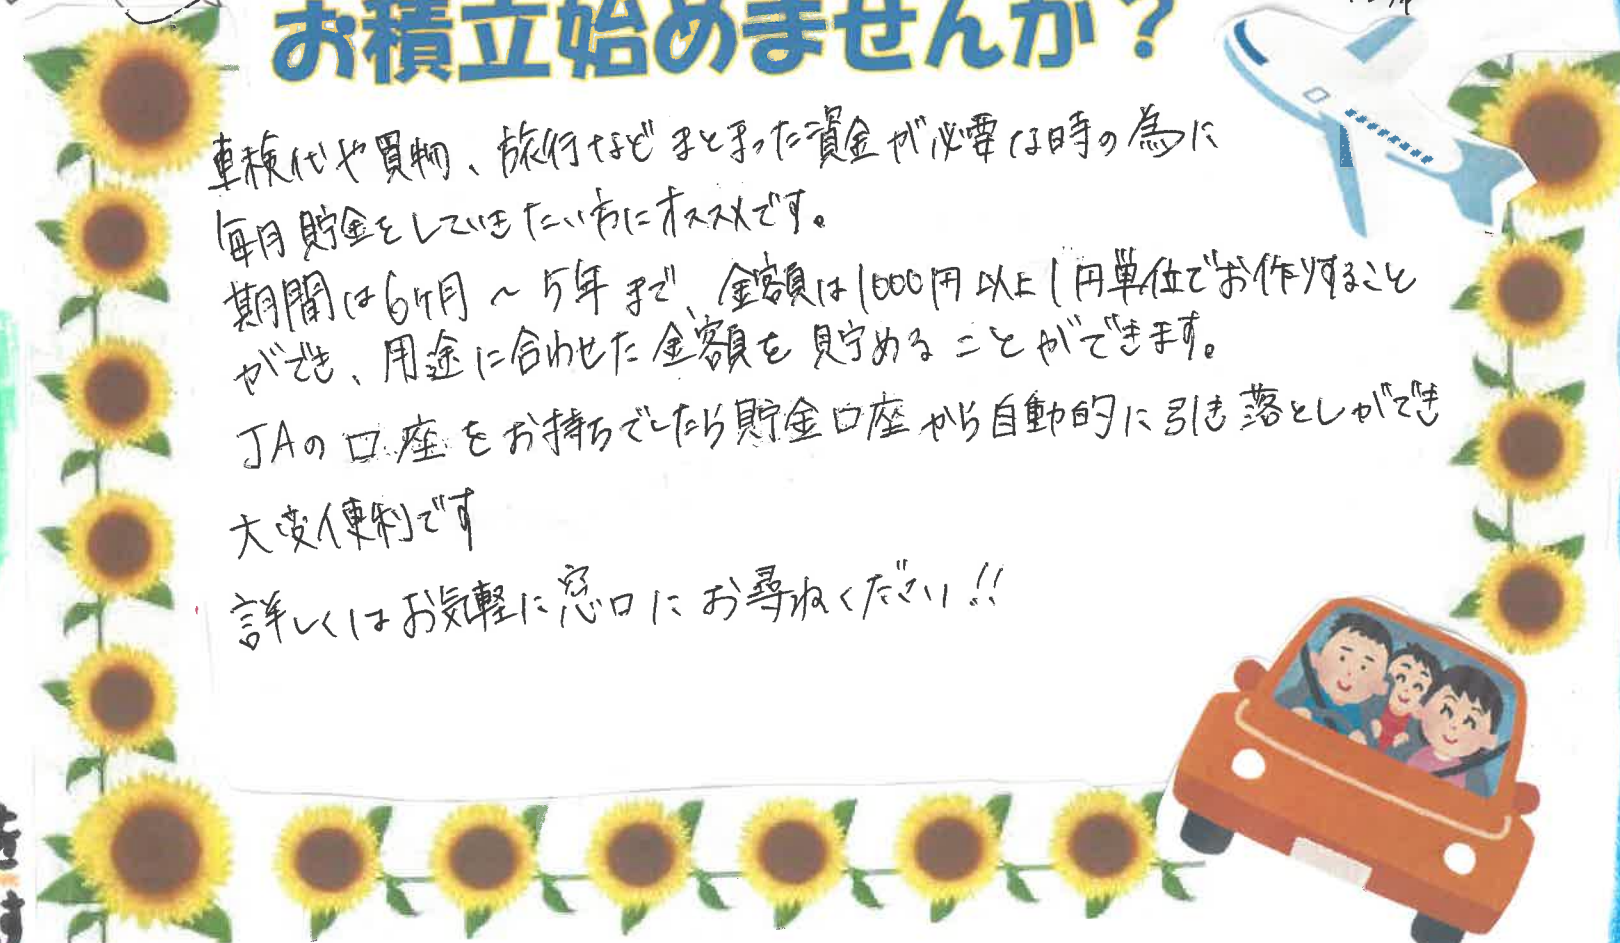 お積立始めませんか?
車検代や買物、旅行などまとまった資金が必要な時の為に
毎月貯金をしていきたい方にオススメです。
期間は6ヶ月～5年まで、金額は1000円以上1円単位でお作りすること
ができ、用途に合わせた金額を貯めることができます。
JAの口座をお持ちでしたら貯金口座から自動的に引き落としができ
大変便利です
詳しくはお気軽に窓口にお尋ねください!!